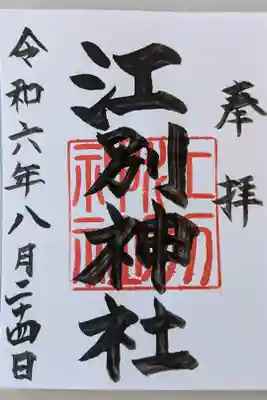 奉拝
江別神社
令和六年八月二十四日